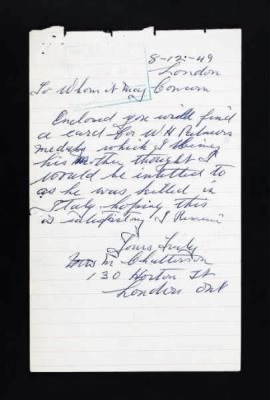 8-12-49
London
To Whom it may Concern
Enclosed you will find
a card for W H
medals which I
his Mother thought I
would be intitled to
as he was killed in
Italy hoping this
is satisfactory I Remain
Yours Truly
Mrs M Chatterson
130 Horton St
London Ont